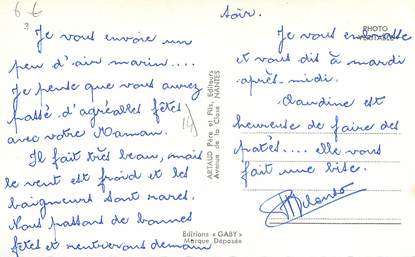 6 €
3
Je vous envoie un
peu d'air marin....
Je pense que vous aurez
passé d'agréables fêtes
avec votre Maman.
Il fait très beau, mais
le vent est froid et les
baigneurs sont rares.
Nous passons de bonnes
fêtes et rentrerons demain
ARTAUD Père et Fils, Editeurs
Avenue de la Close NANTES
Editions « GABY »
Marque Déposée
soir.
PHOTO
VÉRITABLE
Je vous embrasse
et vous dis à mardi
après-midi.
Claudine est
heureuse de faire des
patés.... elle vous
fait une bise.